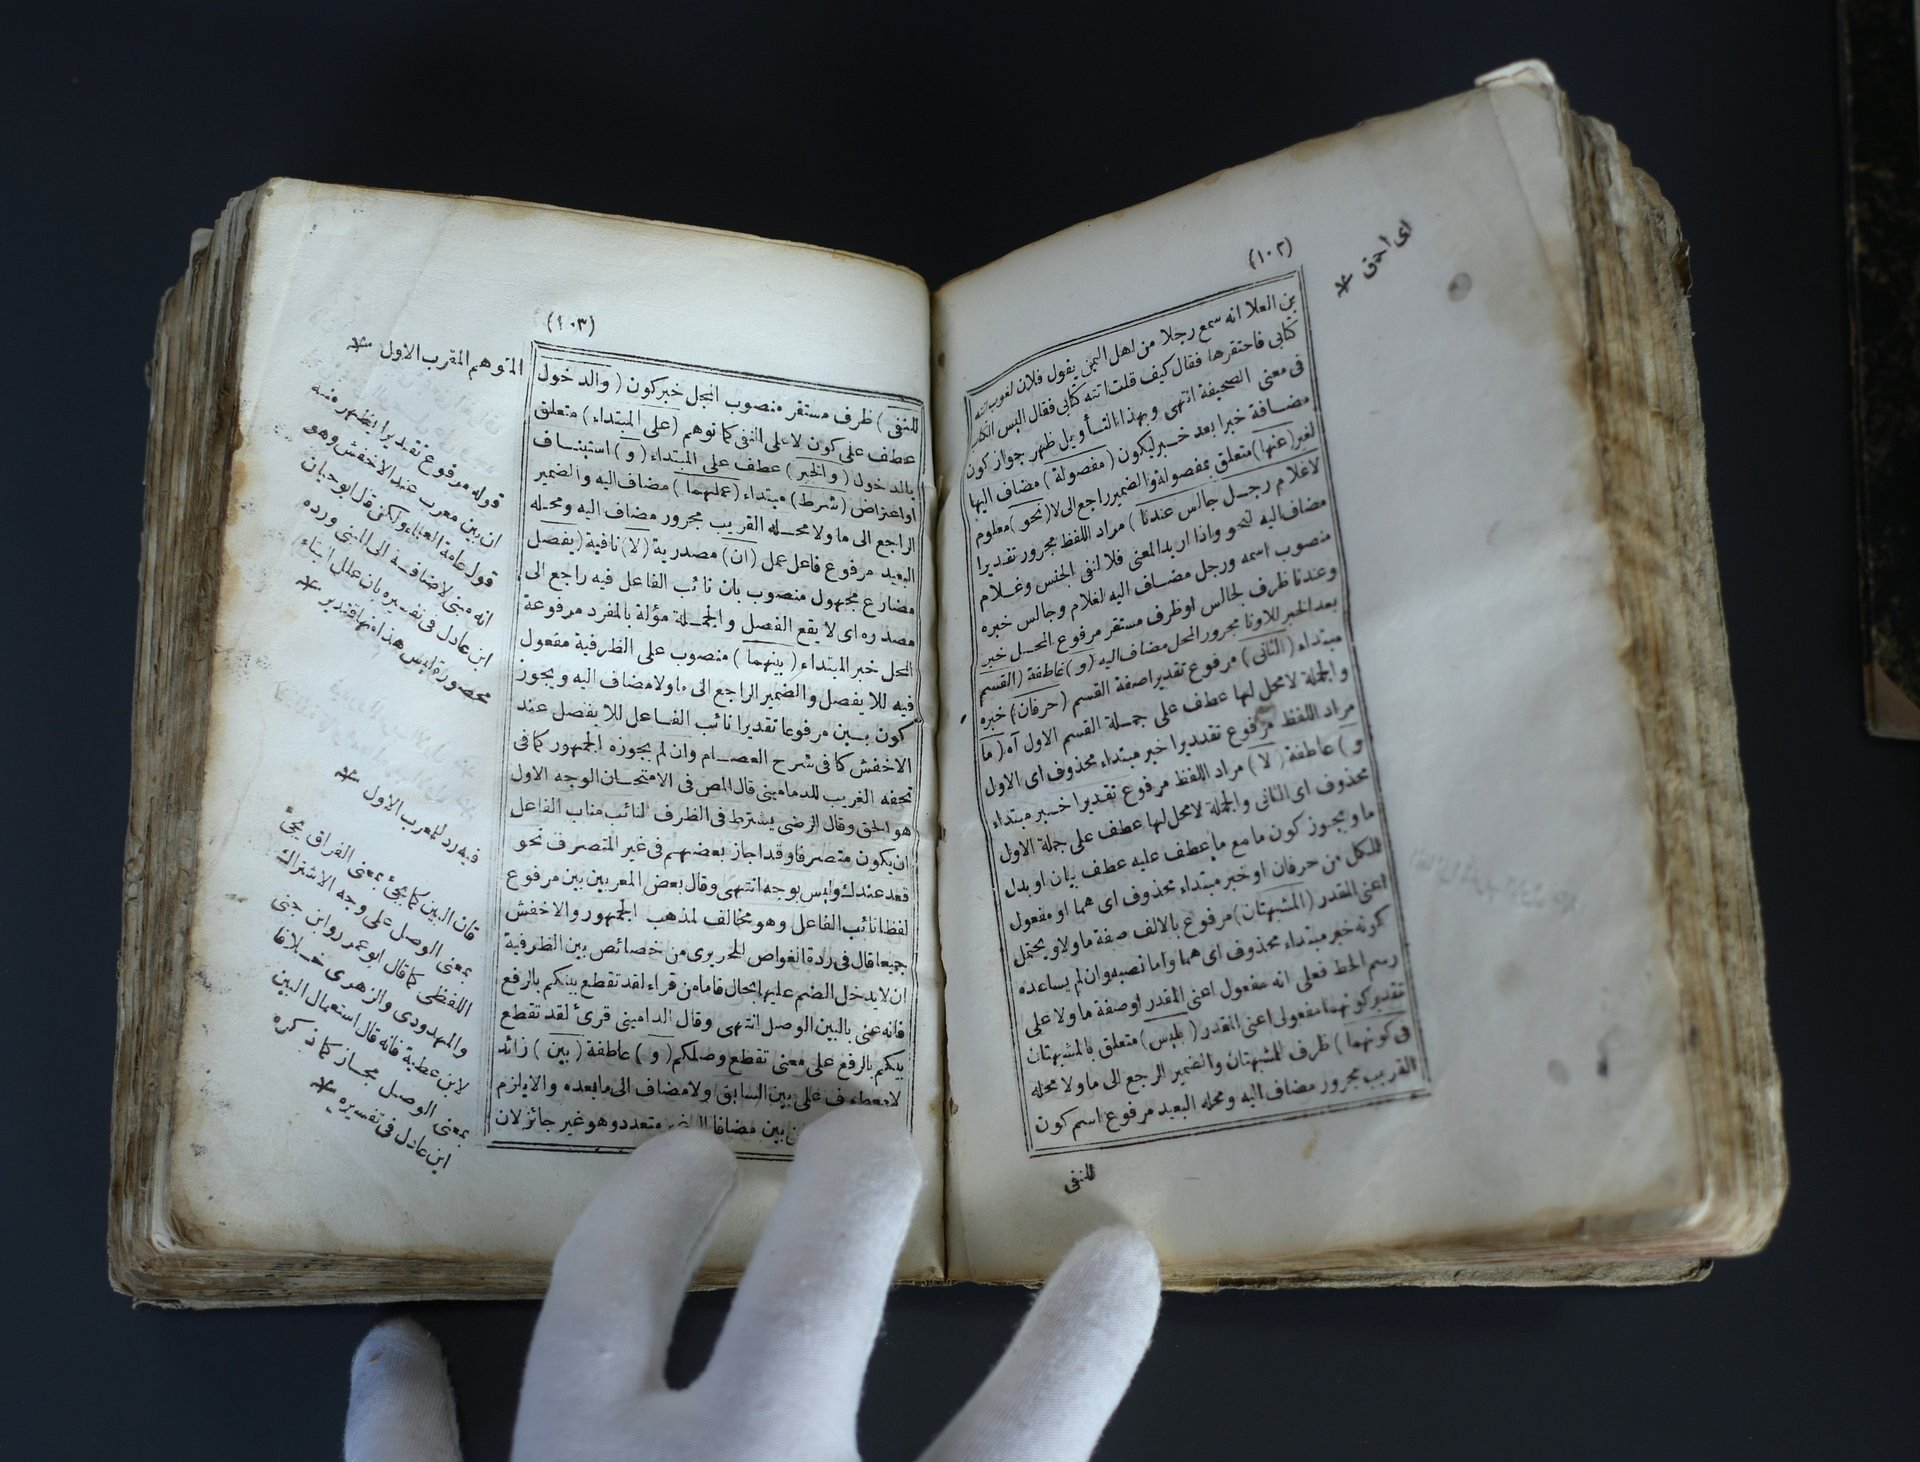 (١٠٢)
بن العلا انه سمع رجلا من اهل اليمن يقول فلان لغوب اتته
كتابى فاحتقرها فقال كيف قلت اتته كتابى فقال اليس الكتاب
فى معنى الصحيفة انتهى وبهذا التأويل ظهر جواز كون
مضافة خبرا بعد خبر ليكون (مفصولة) مضاف اليها
لغير (عنها) متعلق بمفصولة والضمير راجع الى لا (نحو) معلوم
لاغلام رجل جالس عندنا) مراد اللفظ مجرور تقديرا
مضاف اليه لنحو واذا اريد المعنى فلا لنفى الجنس وغلام
منصوب اسمه ورجل مضاف اليه لغلام وجالس خبره
وعندنا ظرف لجالس او ظرف مستقر مرفوع المحل خبر
بعد الخبر للا ونا مجرور المحل مضاف اليه (و) عاطفة (القسم
مبتداء (الثانى) مرفوع تقديرا صفة القسم (حرفان) خبره
والجملة لا محل لها عطف على جملة القسم الاول آه (ما
مراد اللفظ مرفوع تقديرا خبر مبتداء محذوف اى الاول
و) عاطفة (لا) مراد اللفظ مرفوع تقديرا خبر مبتداء
محذوف اى الثانى والجملة لا محل لها عطف على جملة الاول
ما ويجوز كون ما مع ما عطف عليه عطف بيان او بدل
للكل من حرفان او خبر مبتداء محذوف اى هما او مفعول
اعنى المقدر (المشبهتان) مرفوع بالالف صفة ما ولا ويحتمل
كونه خبر مبتداء محذوف اى هما واما نصبه وان لم يساعده
رسم الخط فعلى انه مفعول اعنى المقدر او صفة ما ولا على
تقدير كونهما مفعولى اعنى المقدر (بليس) متعلق بالمشبهتان
فى كونهما) ظرف للمشبهتان والضمير الراجع الى ما ولا محله
القريب مجرور مضاف اليه ومحله البعيد مرفوع اسم كون
للمنفى
اى احمق *
(١٠٣)
للنفى) ظرف مستقر منصوب المحل خبر كون (والدخول
عطف على كون لا على النفى كما توهم (على المبتداء) متعلق
بالدخول (والخبر) عطف على المبتداء (و) استيناف
او اعتراض (شرط) مبتداء (عملهما) مضاف اليه والضمير
الراجع الى ما ولا محله القريب مجرور مضاف اليه ومحله
البعيد مرفوع فاعل عمل (ان) مصدرية (لا) نافية (يفصل
مضارع مجهول منصوب بان نائب الفاعل فيه راجع الى
مصدره اى لا يقع الفصل والجملة مؤلة بالمفرد مرفوعة
المحل خبر المبتداء (بينهما) منصوب على الظرفية مفعول
فيه للا يفصل والضمير الراجع الى ما ولا مضاف اليه ويجوز
كون بين مرفوعا تقديرا نائب الفاعل للا يفصل عند
الاخفش كما فى شرح العصام وان لم يجوزه الجمهور كما فى
تحفة الغريب للدمامينى قال المص فى الامتحان الوجه الاول
هو الحق وقال الرضى يشترط فى الظرف النائب مناب الفاعل
ان يكون متصرفا وقد اجاز بعضهم فى غير المتصرف نحو
قعد عندك وليس بوجه انتهى وقال بعض المعربين بين مرفوع
لفظا نائب الفاعل وهو مخالف لمذهب الجمهور والاخفش
جميعا قال فى درة الغواص للحريرى من خصائص بين الظرفية
ان لا يدخل الضم عليها بحال فاما من قراء لقد تقطع بينكم بالرفع
فانه عنى بالبين الوصل انتهى وقال الدمامينى قرئ لقد تقطع
بينكم بالرفع على معنى تقطع وصلكم (و) عاطفة (بين) زائد
لا معطوف على بين السابق ولا مضاف الى ما بعده والا يلزم
بين مضافا متعدد وهو غير جائز لان
المتوهم المقرب الاول *
قوله مرفوع تقديرا يظهر منه
ان بين معرب عند الاخفش وهو
قول عامة العلماء ولكن قال ابو حيان
انه مبنى لاضافة الى المبنى ورده
ابن عادل فى تفسيره بان علل البناء
محصورة ليس هذا منها فتدبر *
فيه رد لمعرب الاول *
فان البين كما يجئ بمعنى الفراق يجئ
بمعنى الوصل على وجه الاشتراك
اللفظى كما قال ابو عمرو وابن جنى
والمهدوى والزهرى خلافا
لابن عطية فانه قال استعمال البين
بمعنى الوصل مجاز كما ذكره
ابن عادل فى تفسيره *